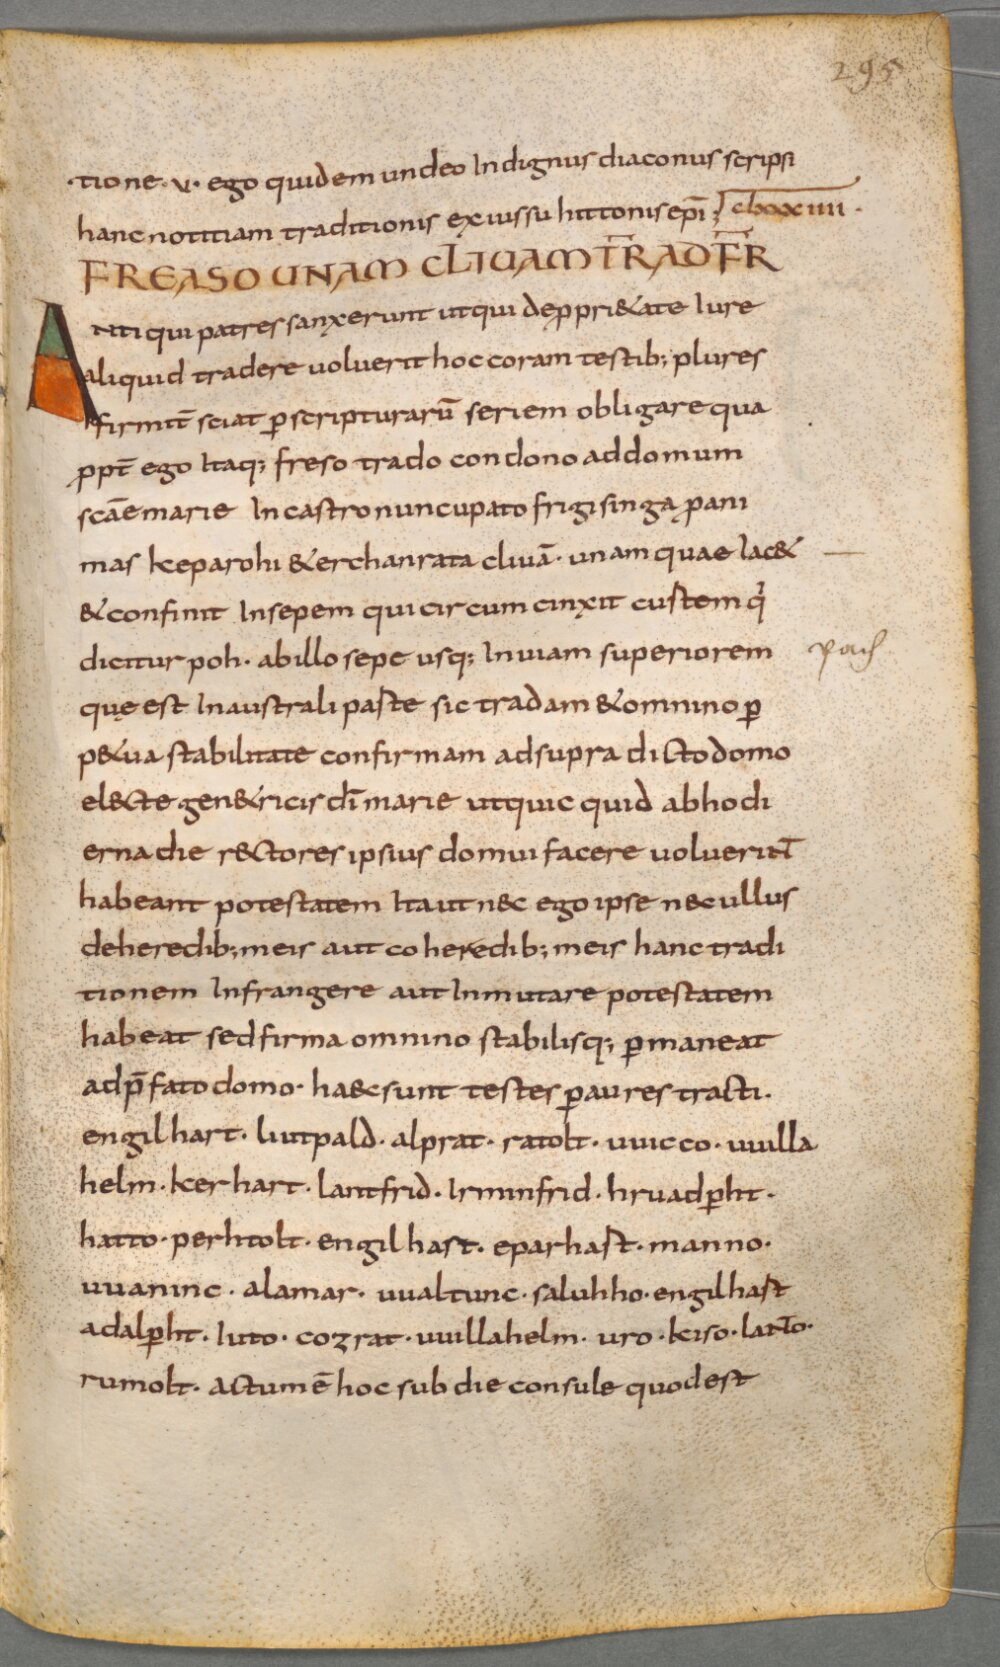 295
·tione· v· ego quidem undeo Indignus diaconus scripsi
hanc notitiam traditionis ex iussu hittonis ep̄i;
FREASO UNAM CLIUAM T̄RAD F̄R
Antiqui patres sanxerunt ut qui de ꝓpri&ate Iure
aliquid tradere voluerit hoc coram testib; plures
firmit̄ sciat ꝑ scripturarū seriem obligare qua
ꝓpt̄ ego Itaq; freso trado condono ad domum
sc̄ae marie In castro nuncupato frigisinga ꝓ ani
mas keparohi & erchanrata cliuā· unam quae Iac& —
& confinit In sepem qui circumcinxit custem q̇
dicitur poh· ab illo sepe usq; In uiam superiorem poch
quę est In australi parte sic tradam & omnino ꝑ
p&ua stabilitate confirmam ad supra dicto domo
electe gen&ricis dī marie ut quic quid ab hodi
erna die rectores ipsius domui facere uoluerint̄
habeant potestatem Ita ut nec ego ipse nec ullus
de heredib; meis aut coheredib; meis hanc tradi
tionem Infrangere aut Inmutare potestatem
habeat sed firma omnino stabilisq; ꝑmaneat
ad p̄fato domo· haec sunt testes ꝑ aures tracti·
engilhart· liutpald· alprat· ratolt· uuicco· uuilla
helm· kerhart· lantfrid· Irminfrid· hruadꝑht·
hatto· perhtolt· engilhart· eparhart· manno·
uuaninc· alamar· uualtunc· saluhho· engilhart
adalꝑht· luto· cozrat· uuillahelm· uro· kiso· lanto·
rumolt· actum ē hoc sub die consule quod est